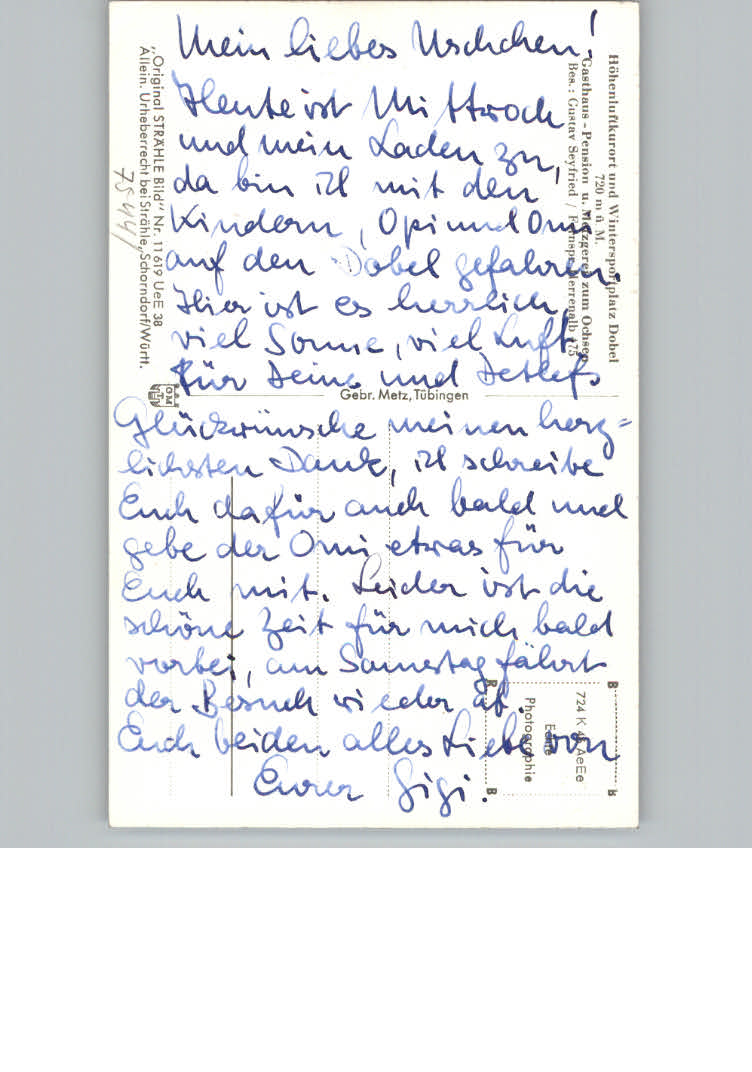 Mein liebes Uschchen!
Heute ist Mittwoch
und mein Laden zu,
da bin ich mit den
Kindern, Opi und Omi
auf den Dobel gefahren.
Hier ist es herrlich,
viel Sonne, viel Luft.
Für Deine und Detlefs
Glückwünsche meinen herz=
lichsten Dank, ich schreibe
Euch dafür auch bald und
gebe der Omi etwas für
Euch mit. Leider ist die
schöne Zeit für mich bald
vorbei, am Samstag fährt
der Besuch wieder ab.
Euch beiden alles Liebe von
Eurer Gigi.
Höhenluftkurort und Wintersportplatz Dobel
720 m ü. M.
Gasthaus-Pension u. Metzgerei zum Ochsen
Bes.: Gustav Seyfried / Fernspr. Herrenalb 475
„Original STRÄHLE Bild" Nr. 11619 UeE 38
Allein. Urheberrecht bei Strähle, Schorndorf/Württ.
Gebr. Metz, Tübingen
724 K 45 AeEe
Echte
Photographie